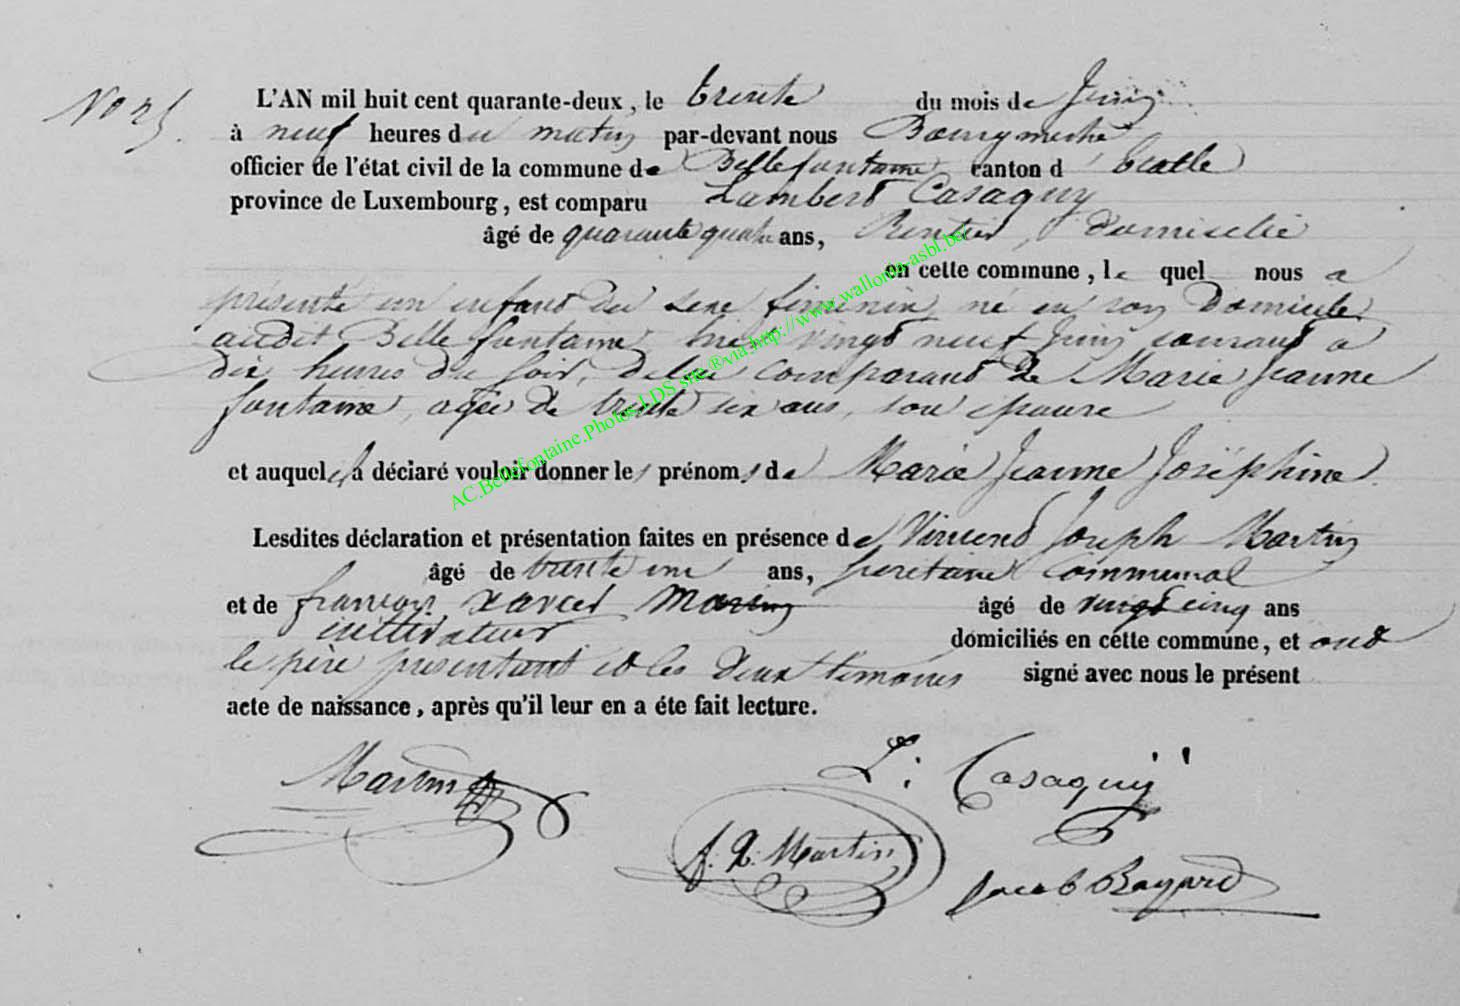 No 25
L'AN mil huit cent quarante-deux, le trente du mois de Juin
à neuf heures du matin par-devant nous Bourgmestre
officier de l'état civil de la commune de Bellefontaine canton d'Etalle
province de Luxembourg, est comparu Lambert Casaquy
âgé de quarante quatre ans, Rentier, domicilié
en cette commune, lequel nous a
présenté un enfant du sexe féminin, né en son Domicile
audit Bellefontaine hier vingt neuf Juin courant a
dix heures du soir, de lui comparant & de Marie Jeanne
fontaine, agée de trente six ans, son épouse
et auquel il a déclaré vouloir donner les prénoms de Marie Jeanne Joséphine.
Lesdites déclaration et présentation faites en présence de Vincent Joseph Martin
âgé de trente un ans, secretaire communal
et de françois xavier Martin âgé de vingt cinq ans
cultivateur domiciliés en cette commune, et ont
le père présentant et les deux témoins signé avec nous le présent
acte de naissance, après qu'il leur en a éte fait lecture.
Martin
L: Casaquÿ
f. X. Martin
Jacob Bayard
AC.Bellefontaine.Photos.LDS site.®via.http://www.wallonia-asbl.be/